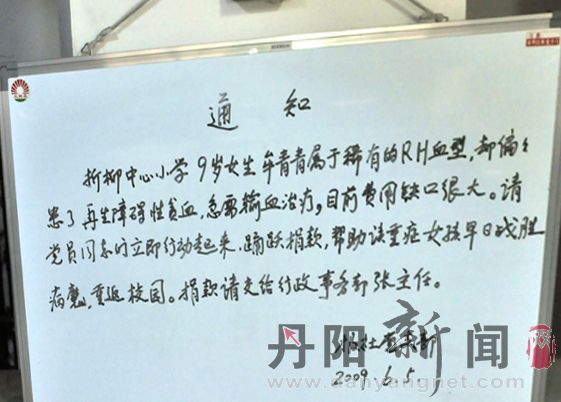 通 知
折柳中心小学9岁女生牟青青属于稀有的RH血型,却偏偏
患了再生障碍性贫血,急需输血治疗,目前费用缺口很大。请
党员同志们立即行动起来,踊跃捐款,帮助该重症女孩早日战胜
病魔,重返校园。捐款请交给行政事务部张主任。
2009.6.5.
丹阳新闻
www.danyangnet.com